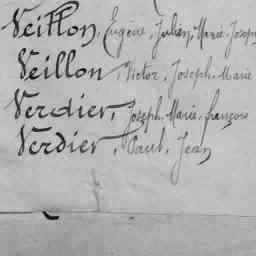 Veillon, Eugène, Julien, Marie, Joseph
Veillon, Victor, Joseph, Marie
Verdier, Joseph, Marie, françois
Verdier, Paul, Jean